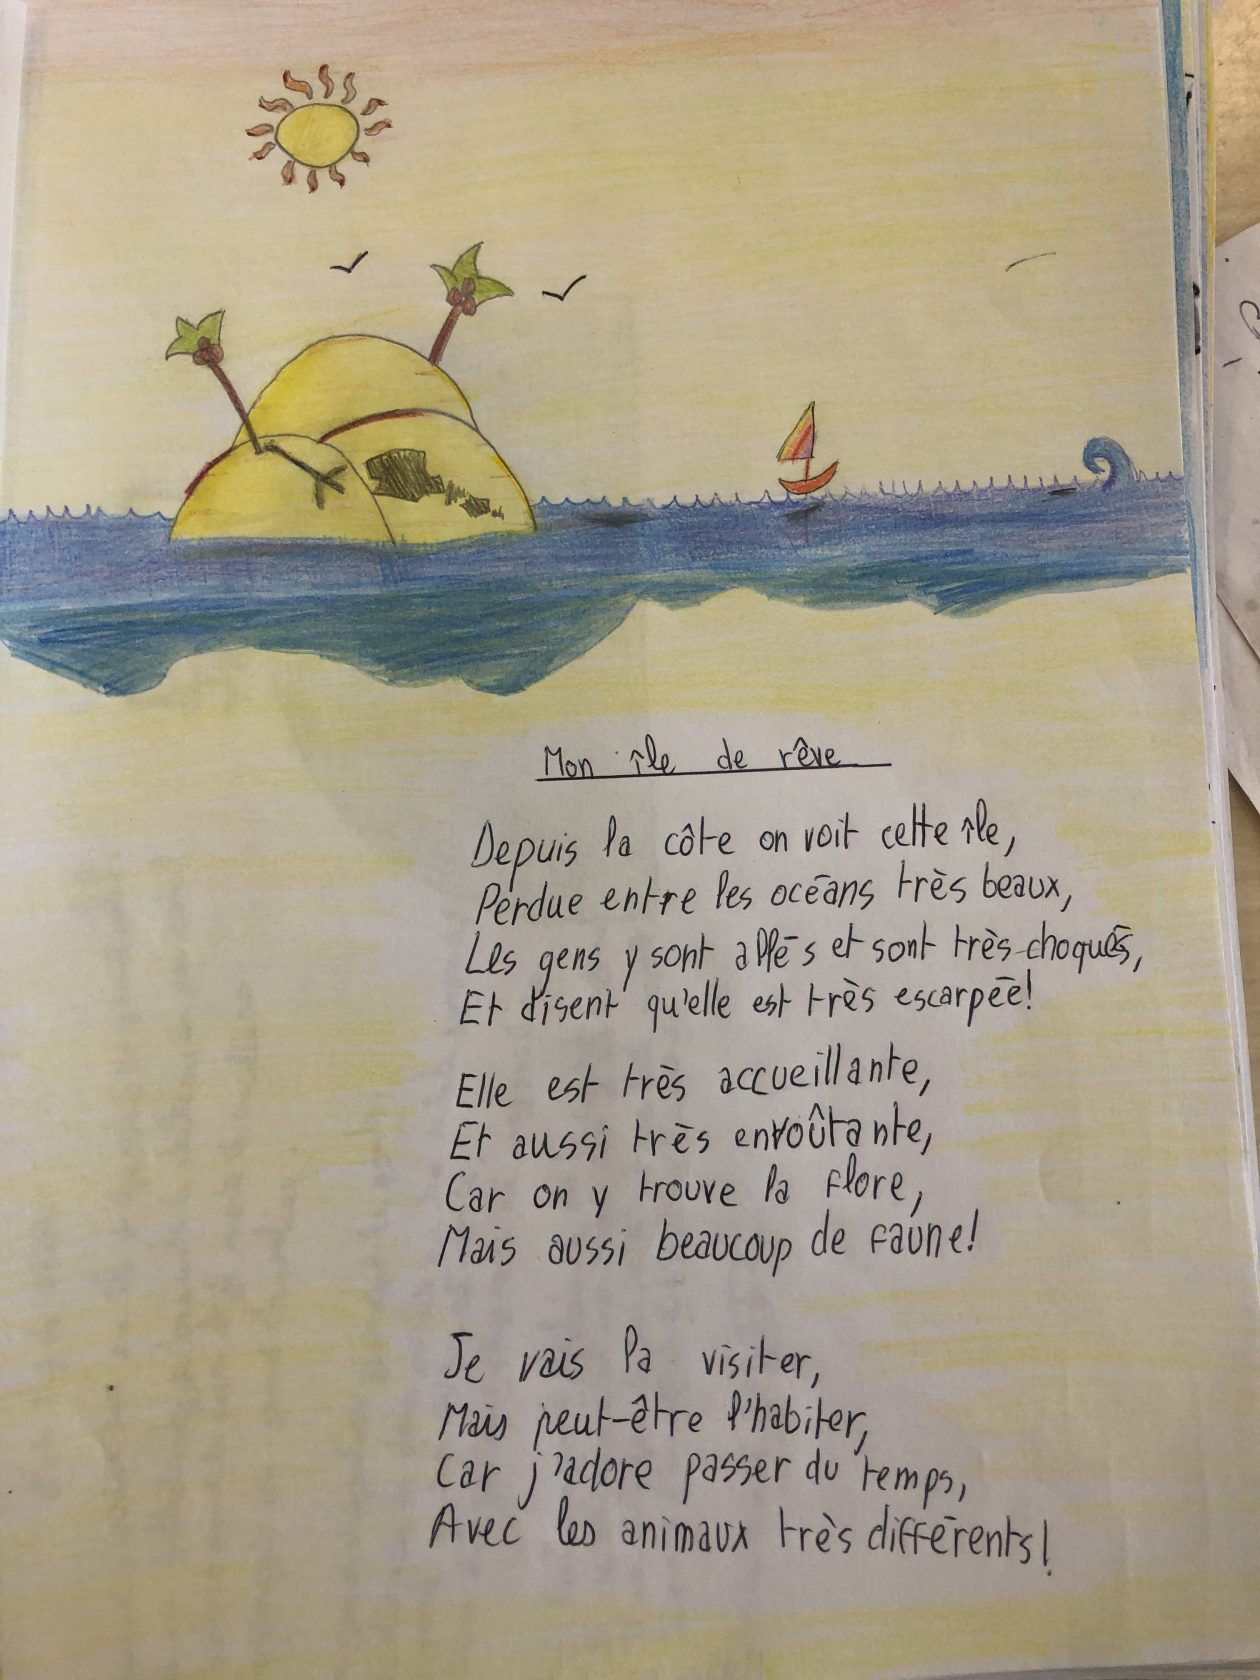 Mon île de rêve
Depuis la côte on voit cette île,
Perdue entre les océans très beaux,
Les gens y sont allés et sont très choqués,
Et disent qu'elle est très escarpée!
Elle est très accueillante,
Et aussi très envoûtante,
Car on y trouve la flore,
Mais aussi beaucoup de faune!
Je vais la visiter,
Mais peut-être l'habiter,
Car j'adore passer du temps,
Avec les animaux très différents!